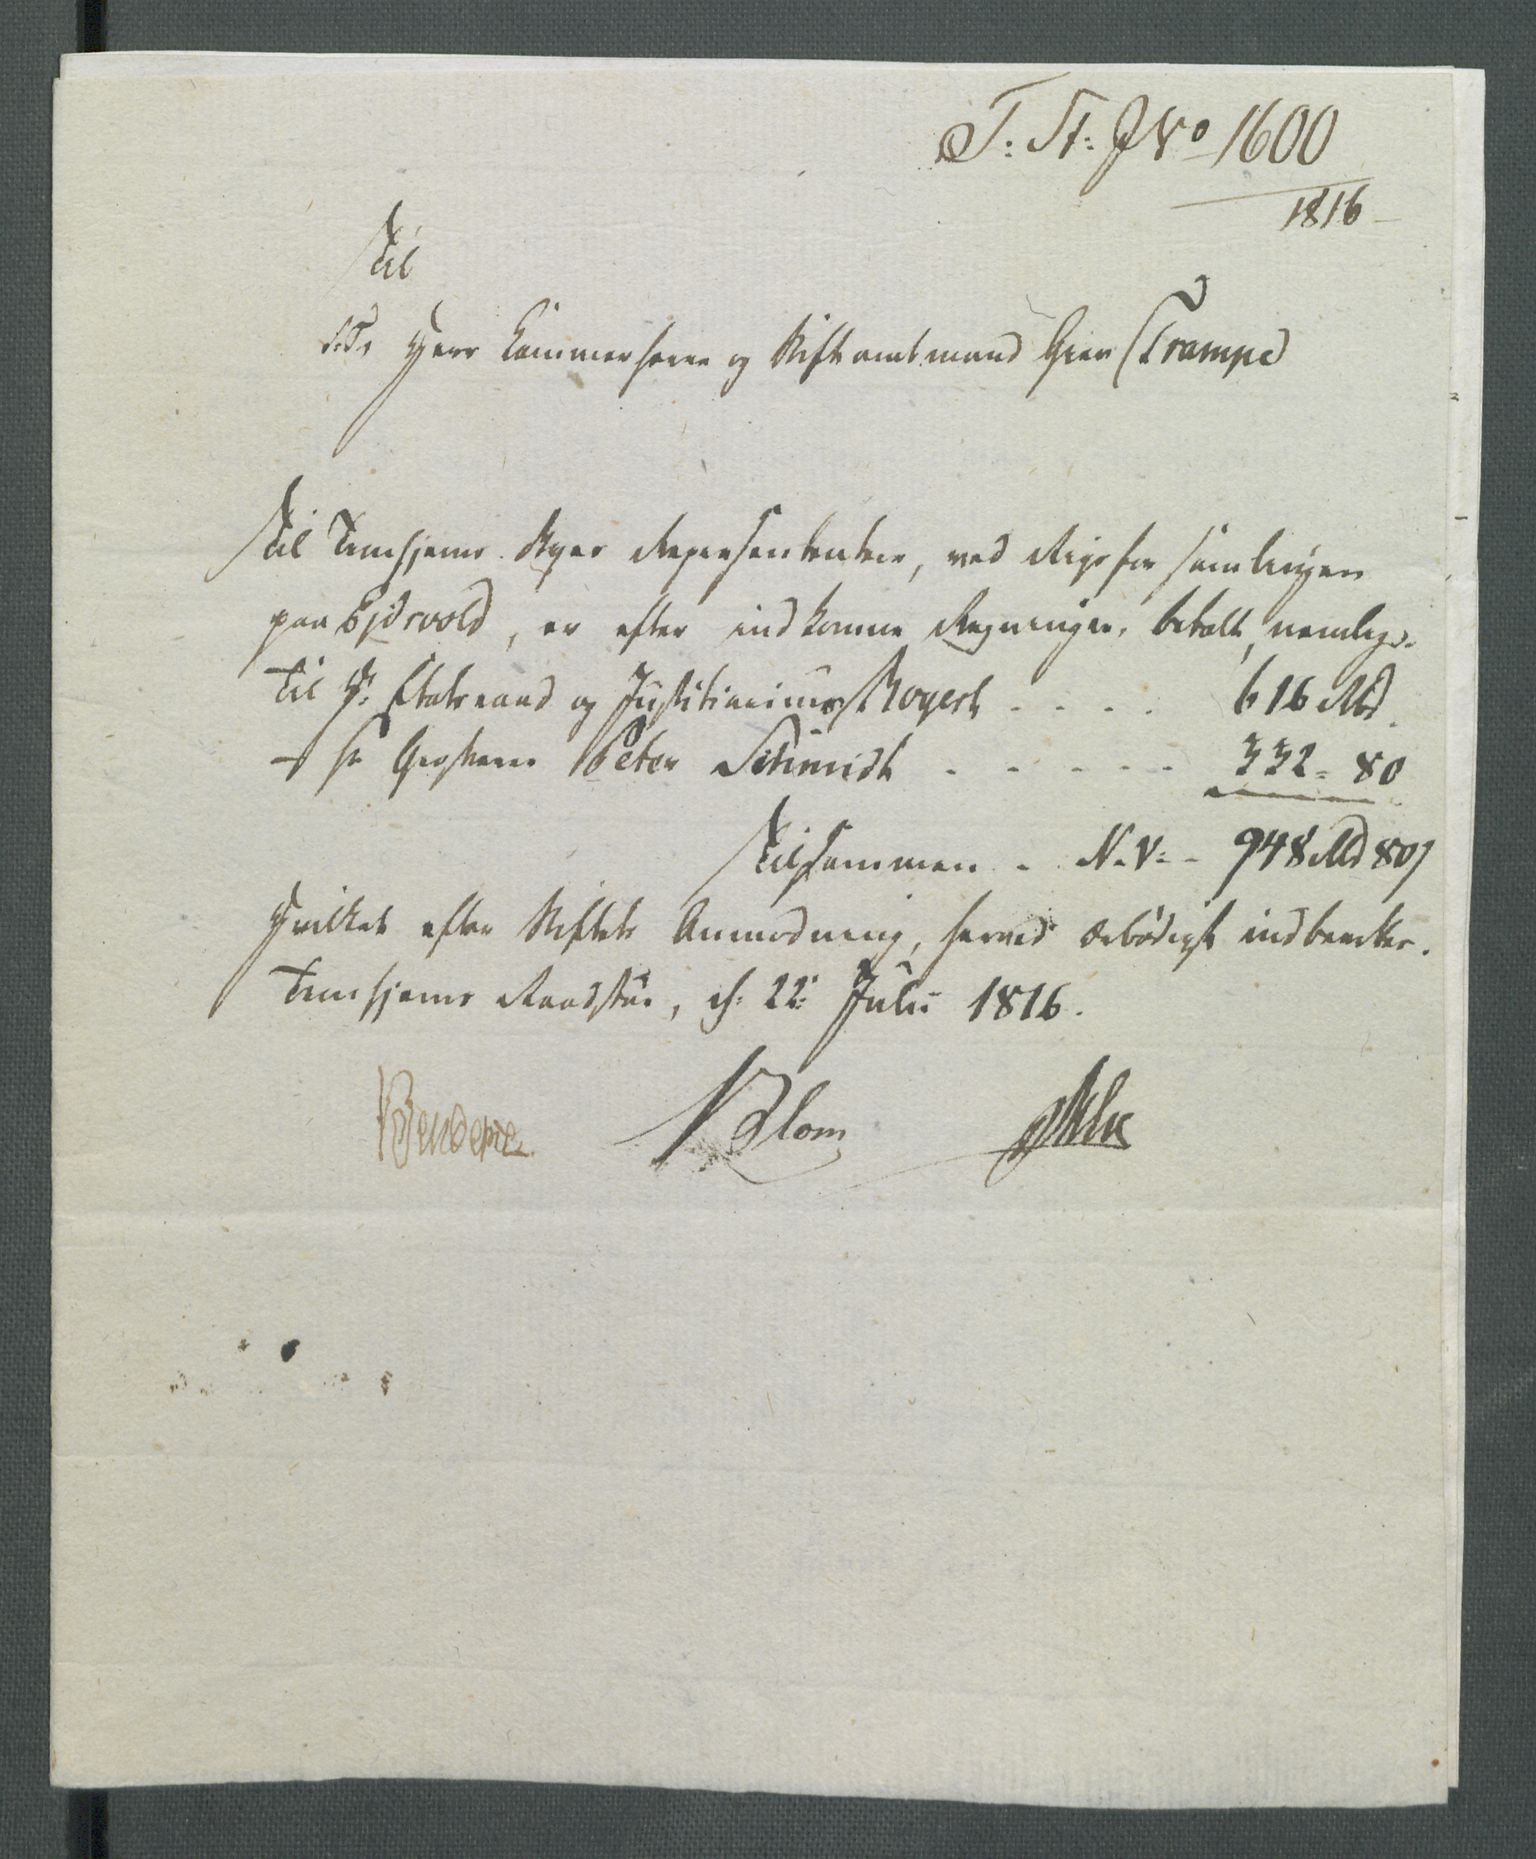 T: St: J No 1600
1816
Til
S. T. Herr Kammerherre og Stiftamtmand Grev Trampe
Til Tronhjems Byes Repræsentantere, ved Rigsforsamlingen
paa Ejdsvold, er efter indkomne Regninger, betalt, nemlig:
til Hr. Etatsraad og Justitiarius Rogert - - - - 616 Rbd.
- Hr Grosserer Peter Schmidt - - - - - 332 = 80
Tilsammen - N. V: - 948 Rbd 80 s
Hvilket efter Stiftets Anmodning, herved ærbødigst indberettes.
Tronhjems Raadstue, d: 22de Julii 1816.
Blom